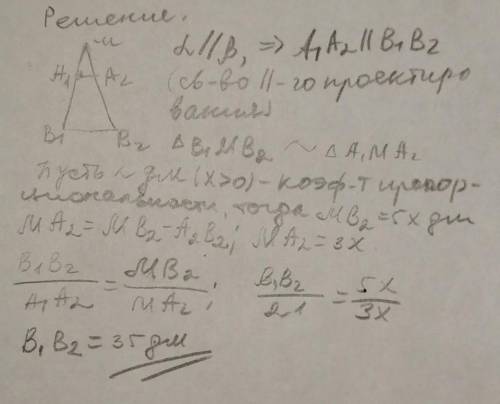 Решение.
M
α//β, => A₁A₂//B₁B₂
A₁ A₂
(св-во //-го проектиро
вания)
B₁ B₂
△B₁MB₂ ~ △A₁MA₂
Пусть x дм (x>0) - коэф-т пропор-
циональности, тогда MB₂=5x дм
MA₂=MB₂-A₂B₂; MA₂=3x
B₁B₂/A₁A₂ = MB₂/MA₂; B₁B₂/21 = 5x/3x
B₁B₂=35дм